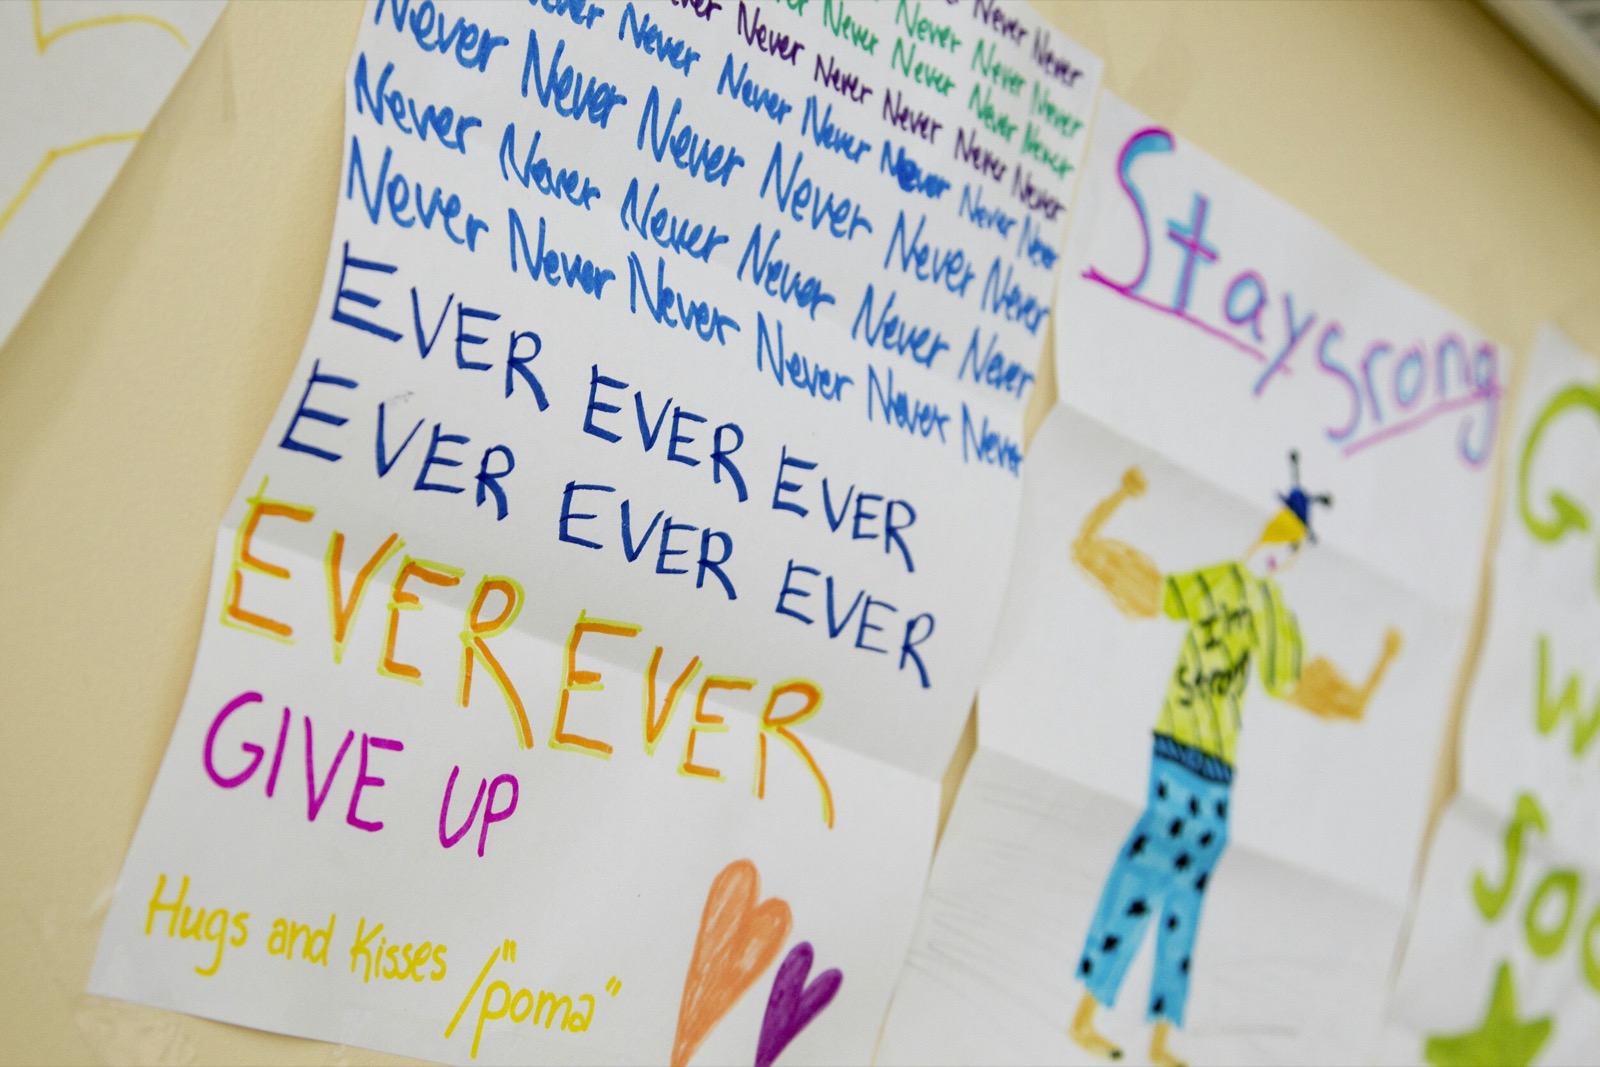 Never Never
Never Never Never
Never Never Never Never
Never Never Never Never Never
Never Never Never Never Never Never
Never Never Never Never Never Never
Never Never Never Never Never Never
Never Never Never Never Never Never
EVER EVER EVER
EVER EVER EVER
EVER EVER
GIVE UP
Hugs and Kisses /"poma"
Stay Srong
I'm
strong